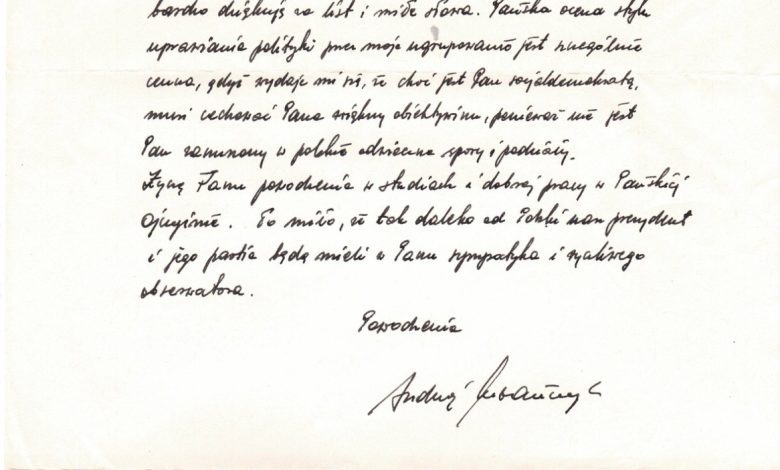 bardzo dziękuję za list i miłe słowa. Pańska ocena stylu
uprawiania polityki przez moje ugrupowanie jest szczególnie
cenna, gdyż wydaje mi się, że choć jest Pan socjaldemokratą,
musi cechować Pana większy obiektywizm, ponieważ nie jest
Pan w polskie odwieczne spory i podziały.
Życzę Panu powodzenia w studiach i dobrej pracy w Pańskiej
Ojczyźnie. To miło, że tak daleko od Polski nasz prezydent
i jego partia będą mieli w Panu sympatyka i życzliwego
obserwatora.
Powodzenia
Andrzej